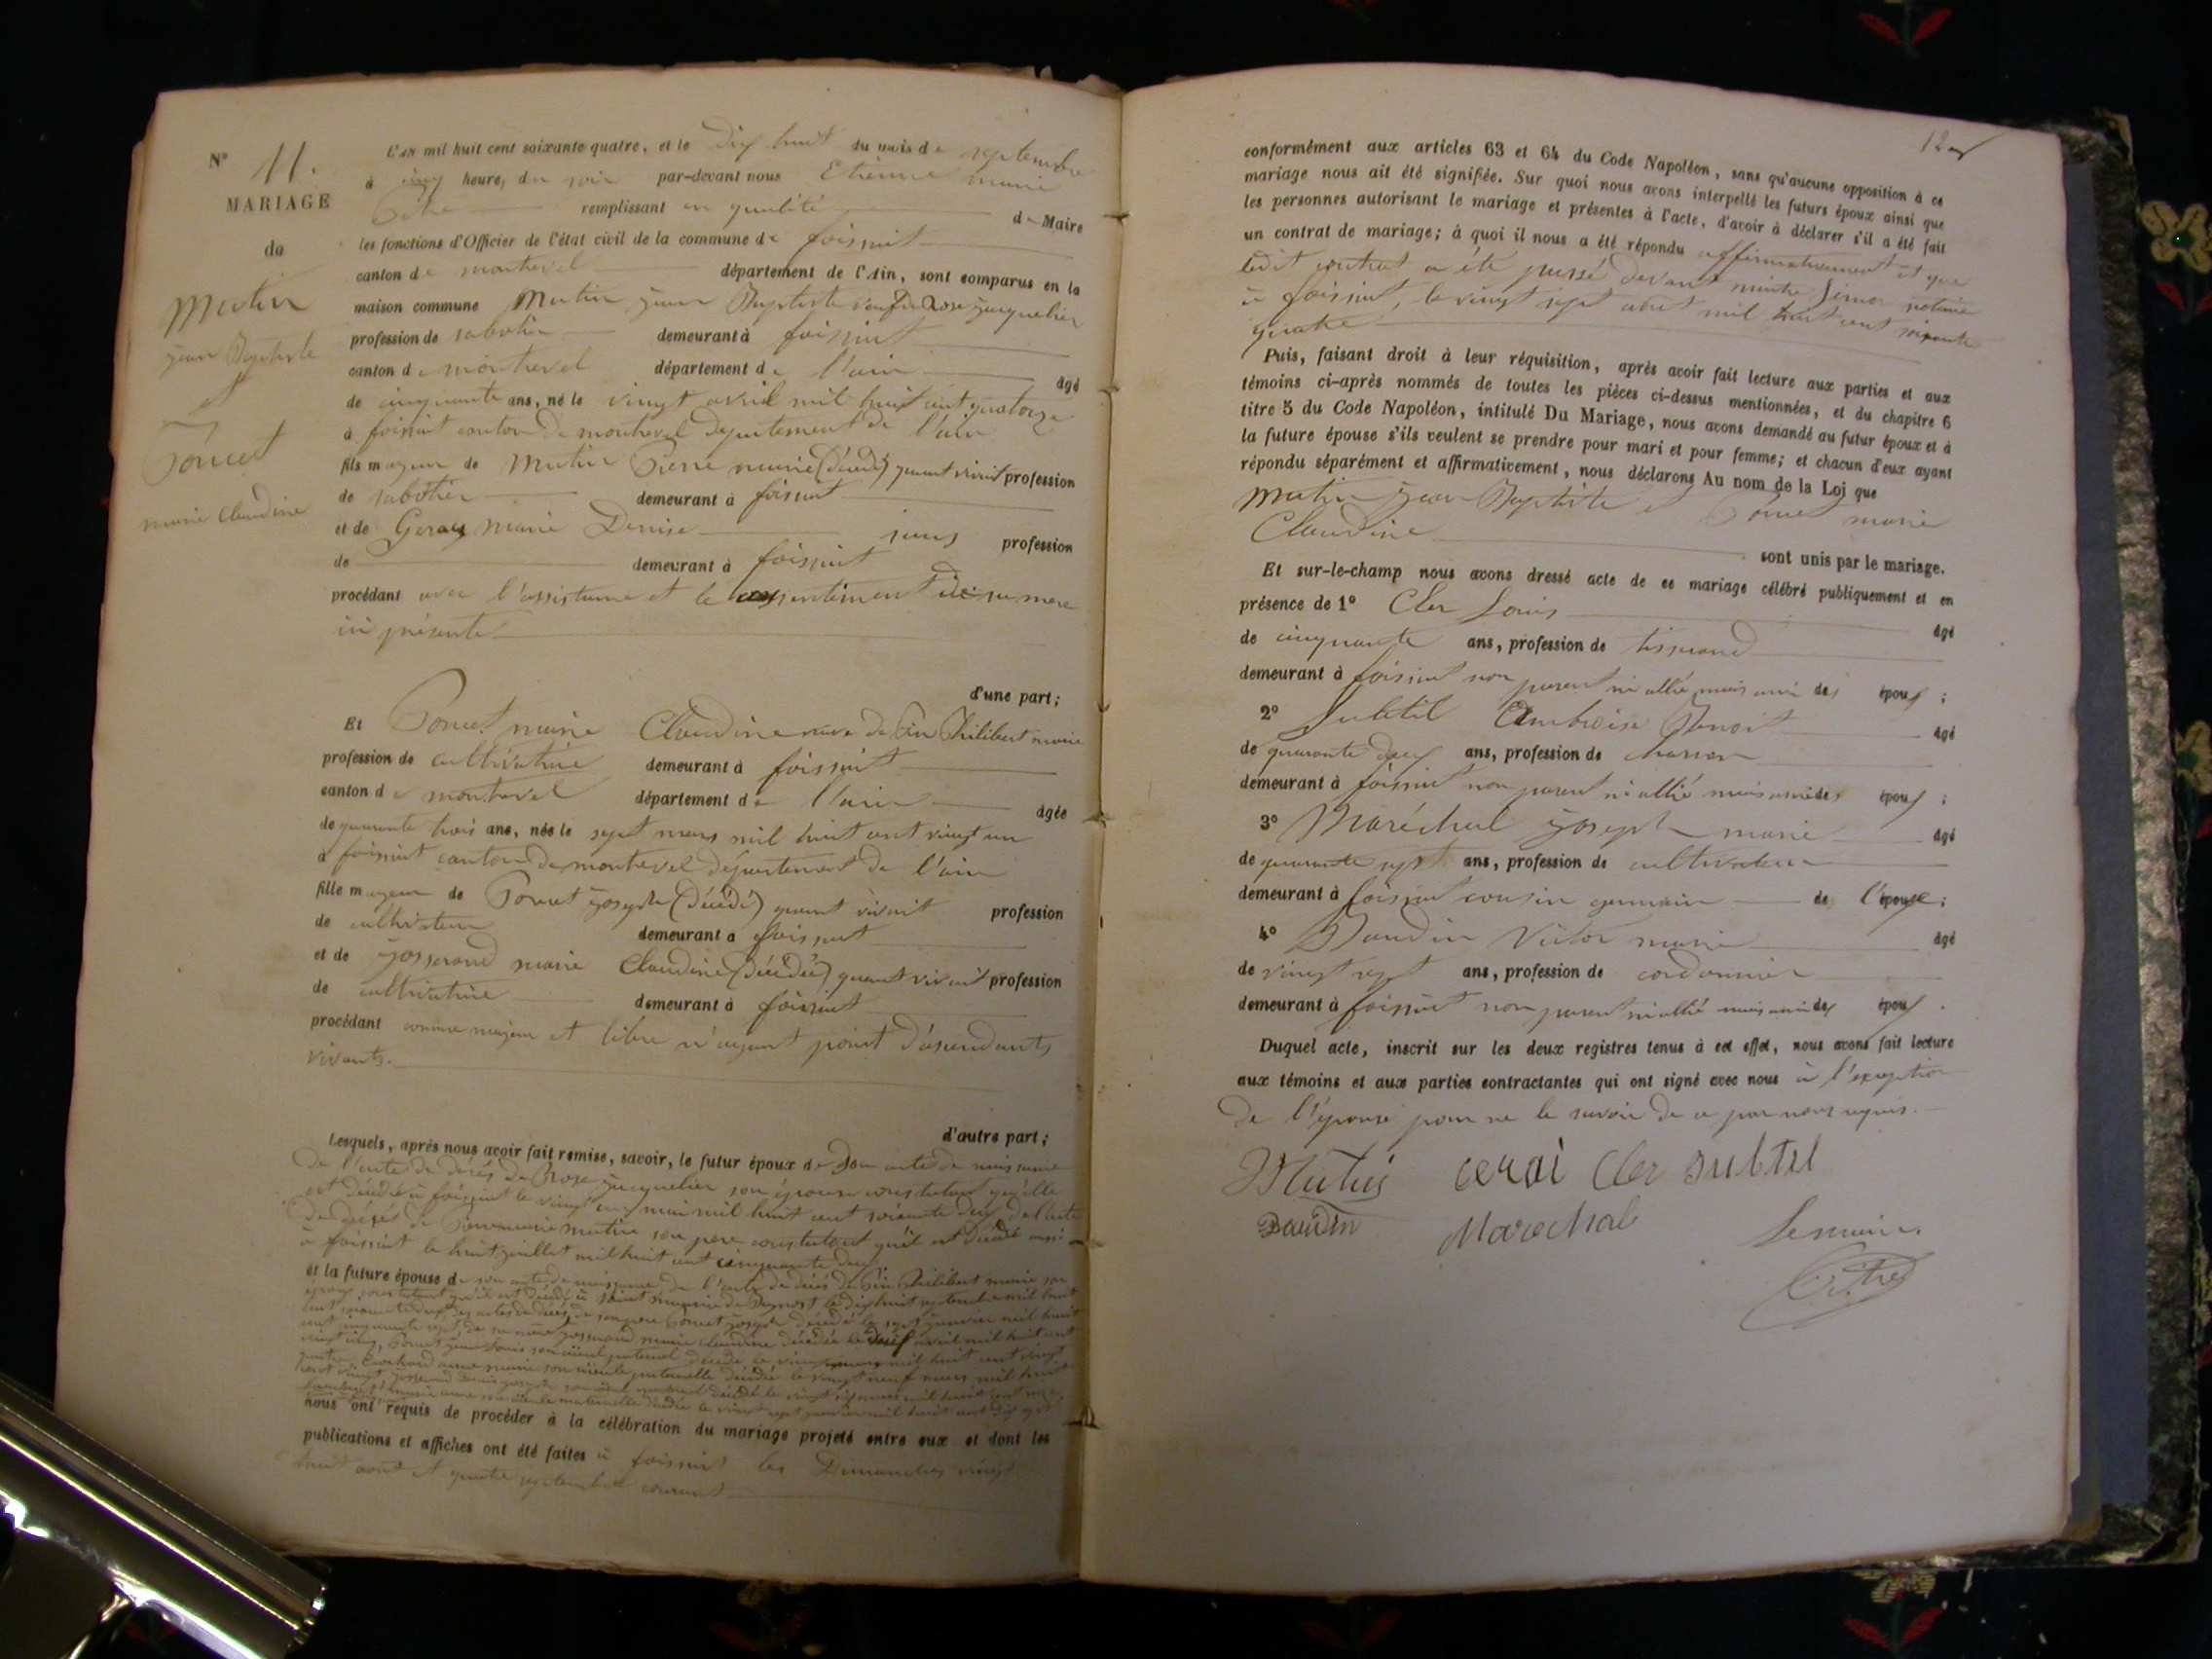 N° 11.
MARIAGE
de
Mutin
jean Baptiste
et
Poncet
marie Claudine
L'AN mil huit cent soixante quatre, et le dix huit du mois de septembre
à cinq heures du soir par-devant nous Etienne marie
remplissant en qualité de Maire
les fonctions d'Officier de l'état civil de la commune de foissiat
canton de montrevel département de l'Ain, sont comparus en la
maison commune Mutin jean Baptiste veuf de Rose jacquelier
profession de sabotier demeurant à foissiat
canton de montrevel département de l'ain âgé
de cinquante ans, né le vingt avril mil huit cent quatorze
à foissiat canton de montrevel département de l'ain
fils majeur de Mutin Pierre marie (décédé) quant vivait profession
de sabotier demeurant à foissiat
et de Geray marie Denise sans profession
de demeurant à foissiat
procédant avec l'assistance et le consentement de sa mère
ici présente
d'une part;
Et Poncet marie Claudine veuve de Pin Philibert marie
profession de cultivatrice demeurant à foissiat
canton de montrevel département de l'ain âgée
de quarante trois ans, née le sept mars mil huit cent vingt un
à foissiat canton de montrevel département de l'ain
fille majeur de Poncet joseph (décédé) quant vivait profession
de cultivateur demeurant à foissiat
et de josserand marie Claudine (décédée) quant vivait profession
de cultivatrice demeurant à foissiat
procédant comme majeure et libre n'ayant point d'ascendants
vivants.
d'autre part;
Lesquels, après nous avoir fait remise, savoir, le futur époux de son acte de naissance
de l'acte de décès de Rose jacquelier son épouse constatant qu'elle
est décédée à foissiat le vingt cinq mai mil huit cent soixante deux de l'acte
de décès de Pierre marie mutin son père constatant qu'il est décédé aussi
à foissiat le huit juillet mil huit cent cinquante deux
et la future épouse de son acte de naissance de l'acte de décès de Pin Philibert marie son
époux constatant qu'il est décédé à le dix huit septembre mil huit
cent soixante deux des actes de décès de son père Poncet joseph décédé le sept janvier mil huit
cent cinquante sept de sa mère josserand marie claudine décédée le avril mil huit cent
vingt cinq Poncet son aïeul paternel décédé le mil huit cent vingt
quatre anne marie son aïeule paternelle décédée le vingt neuf mars mil huit
cent vingt josserand joseph son aïeul maternel décédé le vingt six mars mil huit cent
marie anne son aïeule maternelle décédée le vingt sept janvier mil huit cent dix sept
nous ont requis de procéder à la célébration du mariage projeté entre eux et dont les
publications et affiches ont été faites à foissiat les Dimanches vingt
huit août et quatre septembre courant
12
conformément aux articles 63 et 64 du Code Napoléon, sans qu'aucune opposition à ce
mariage nous ait été signifiée. Sur quoi nous avons interpellé les futurs époux ainsi que
les personnes autorisant le mariage et présentes à l'acte, d'avoir à déclarer s'il a été fait
un contrat de mariage; à quoi il nous a été répondu affirmativement et que
ledit contrat a été passé devant maître notaire
à foissiat, le vingt sept août mil huit cent soixante
quatre
Puis, faisant droit à leur réquisition, après avoir fait lecture aux parties et aux
témoins ci-après nommés de toutes les pièces ci-dessus mentionnées, et du chapitre 6
titre 5 du Code Napoléon, intitulé Du Mariage, nous avons demandé au futur époux et à
la future épouse s'ils veulent se prendre pour mari et pour femme; et chacun d'eux ayant
répondu séparément et affirmativement, nous déclarons Au nom de la Loi que
Mutin jean Baptiste et Poncet marie
Claudine sont unis par le mariage.
Et sur-le-champ nous avons dressé acte de ce mariage célébré publiquement et en
présence de 1° Cler Louis âgé
de cinquante ans, profession de tisserand
demeurant à foissiat non parent ni allié mais ami des époux;
2° Subtil Ambroise Benoit âgé
de quarante deux ans, profession de charron
demeurant à foissiat non parent ni allié mais ami des époux;
3° Maréchal joseph marie âgé
de quarante sept ans, profession de cultivateur
demeurant à foissiat cousin germain de l'épouse;
4° Baudin Victor marie âgé
de vingt sept ans, profession de cordonnier
demeurant à foissiat non parent ni allié mais ami des époux.
Duquel acte, inscrit sur les deux registres tenus à cet effet, nous avons fait lecture
aux témoins et aux parties contractantes qui ont signé avec nous à l'exception
de l'épouse pour ne le savoir de ce par nous requis.
Mutin Cler Subtil
Baudin Marechal Le maire.